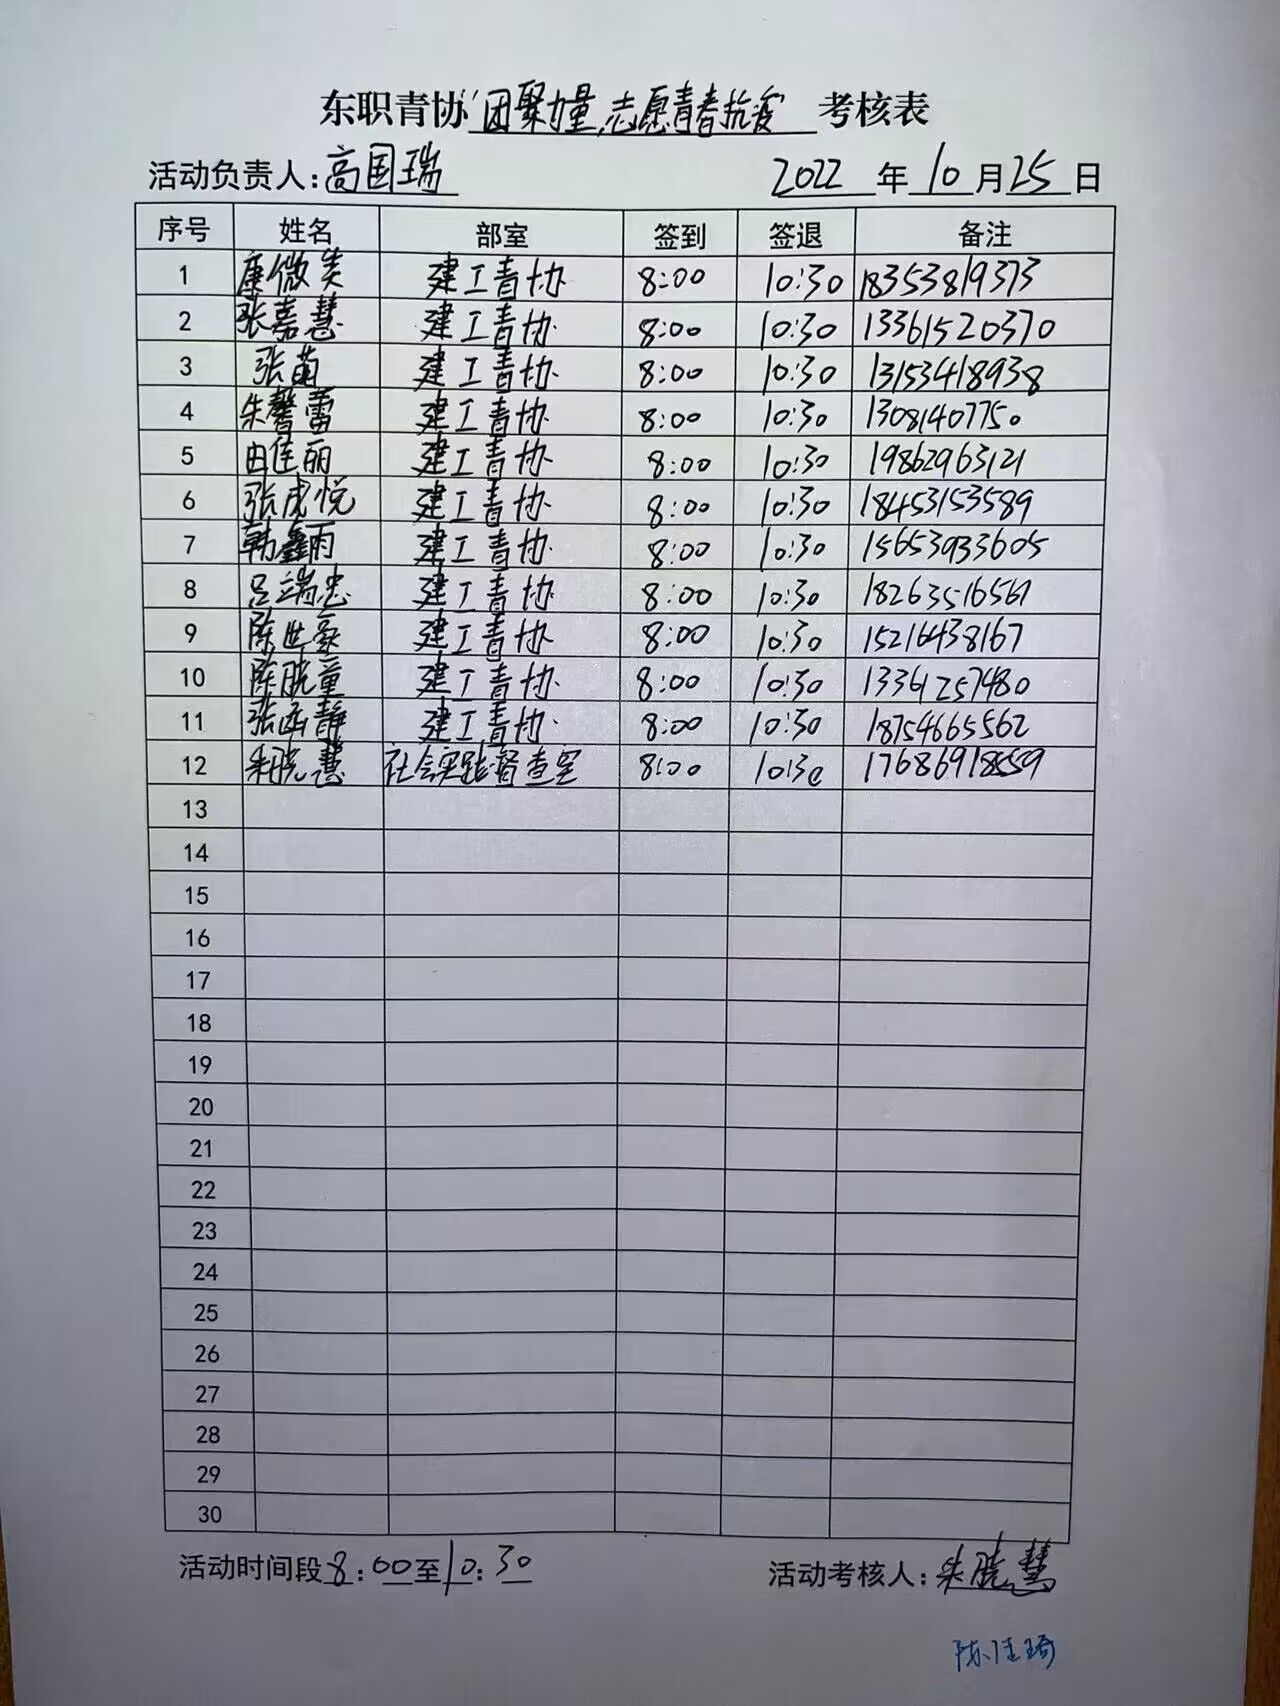 东职青协“团聚力量,志愿青春抗疫 考核表
活动负责人:高国瑞 2022 年 10 月 25 日
序号 姓名 部室 签到 签退 备注
1 康微笑 建工青协 8:00 10:30 18353819373
2 张嘉慧 建工青协 8:00 10:30 13361520370
3 张苗 建工青协 8:00 10:30 13153418938
4 朱馨蕾 建工青协 8:00 10:30 13081407750
5 由佳丽 建工青协 8:00 10:30 19862963121
6 张成悦 建工青协 8:00 10:30 18453153589
7 韩鑫雨 建工青协 8:00 10:30 15653933605
8 吕端忠 建工青协 8:00 10:30 18263516561
9 陈世豪 建工青协 8:00 10:30 15216438167
10 陈晓童 建工青协 8:00 10:30 13361257480
11 张函静 建工青协 8:00 10:30 18754665562
12 朱晓慧 社会实践督查室 8:00 10:30 17686918559
13
14
15
16
17
18
19
20
21
22
23
24
25
26
27
28
29
30
活动时间段8:00至10:30 活动考核人:朱晓慧
陈佳琦